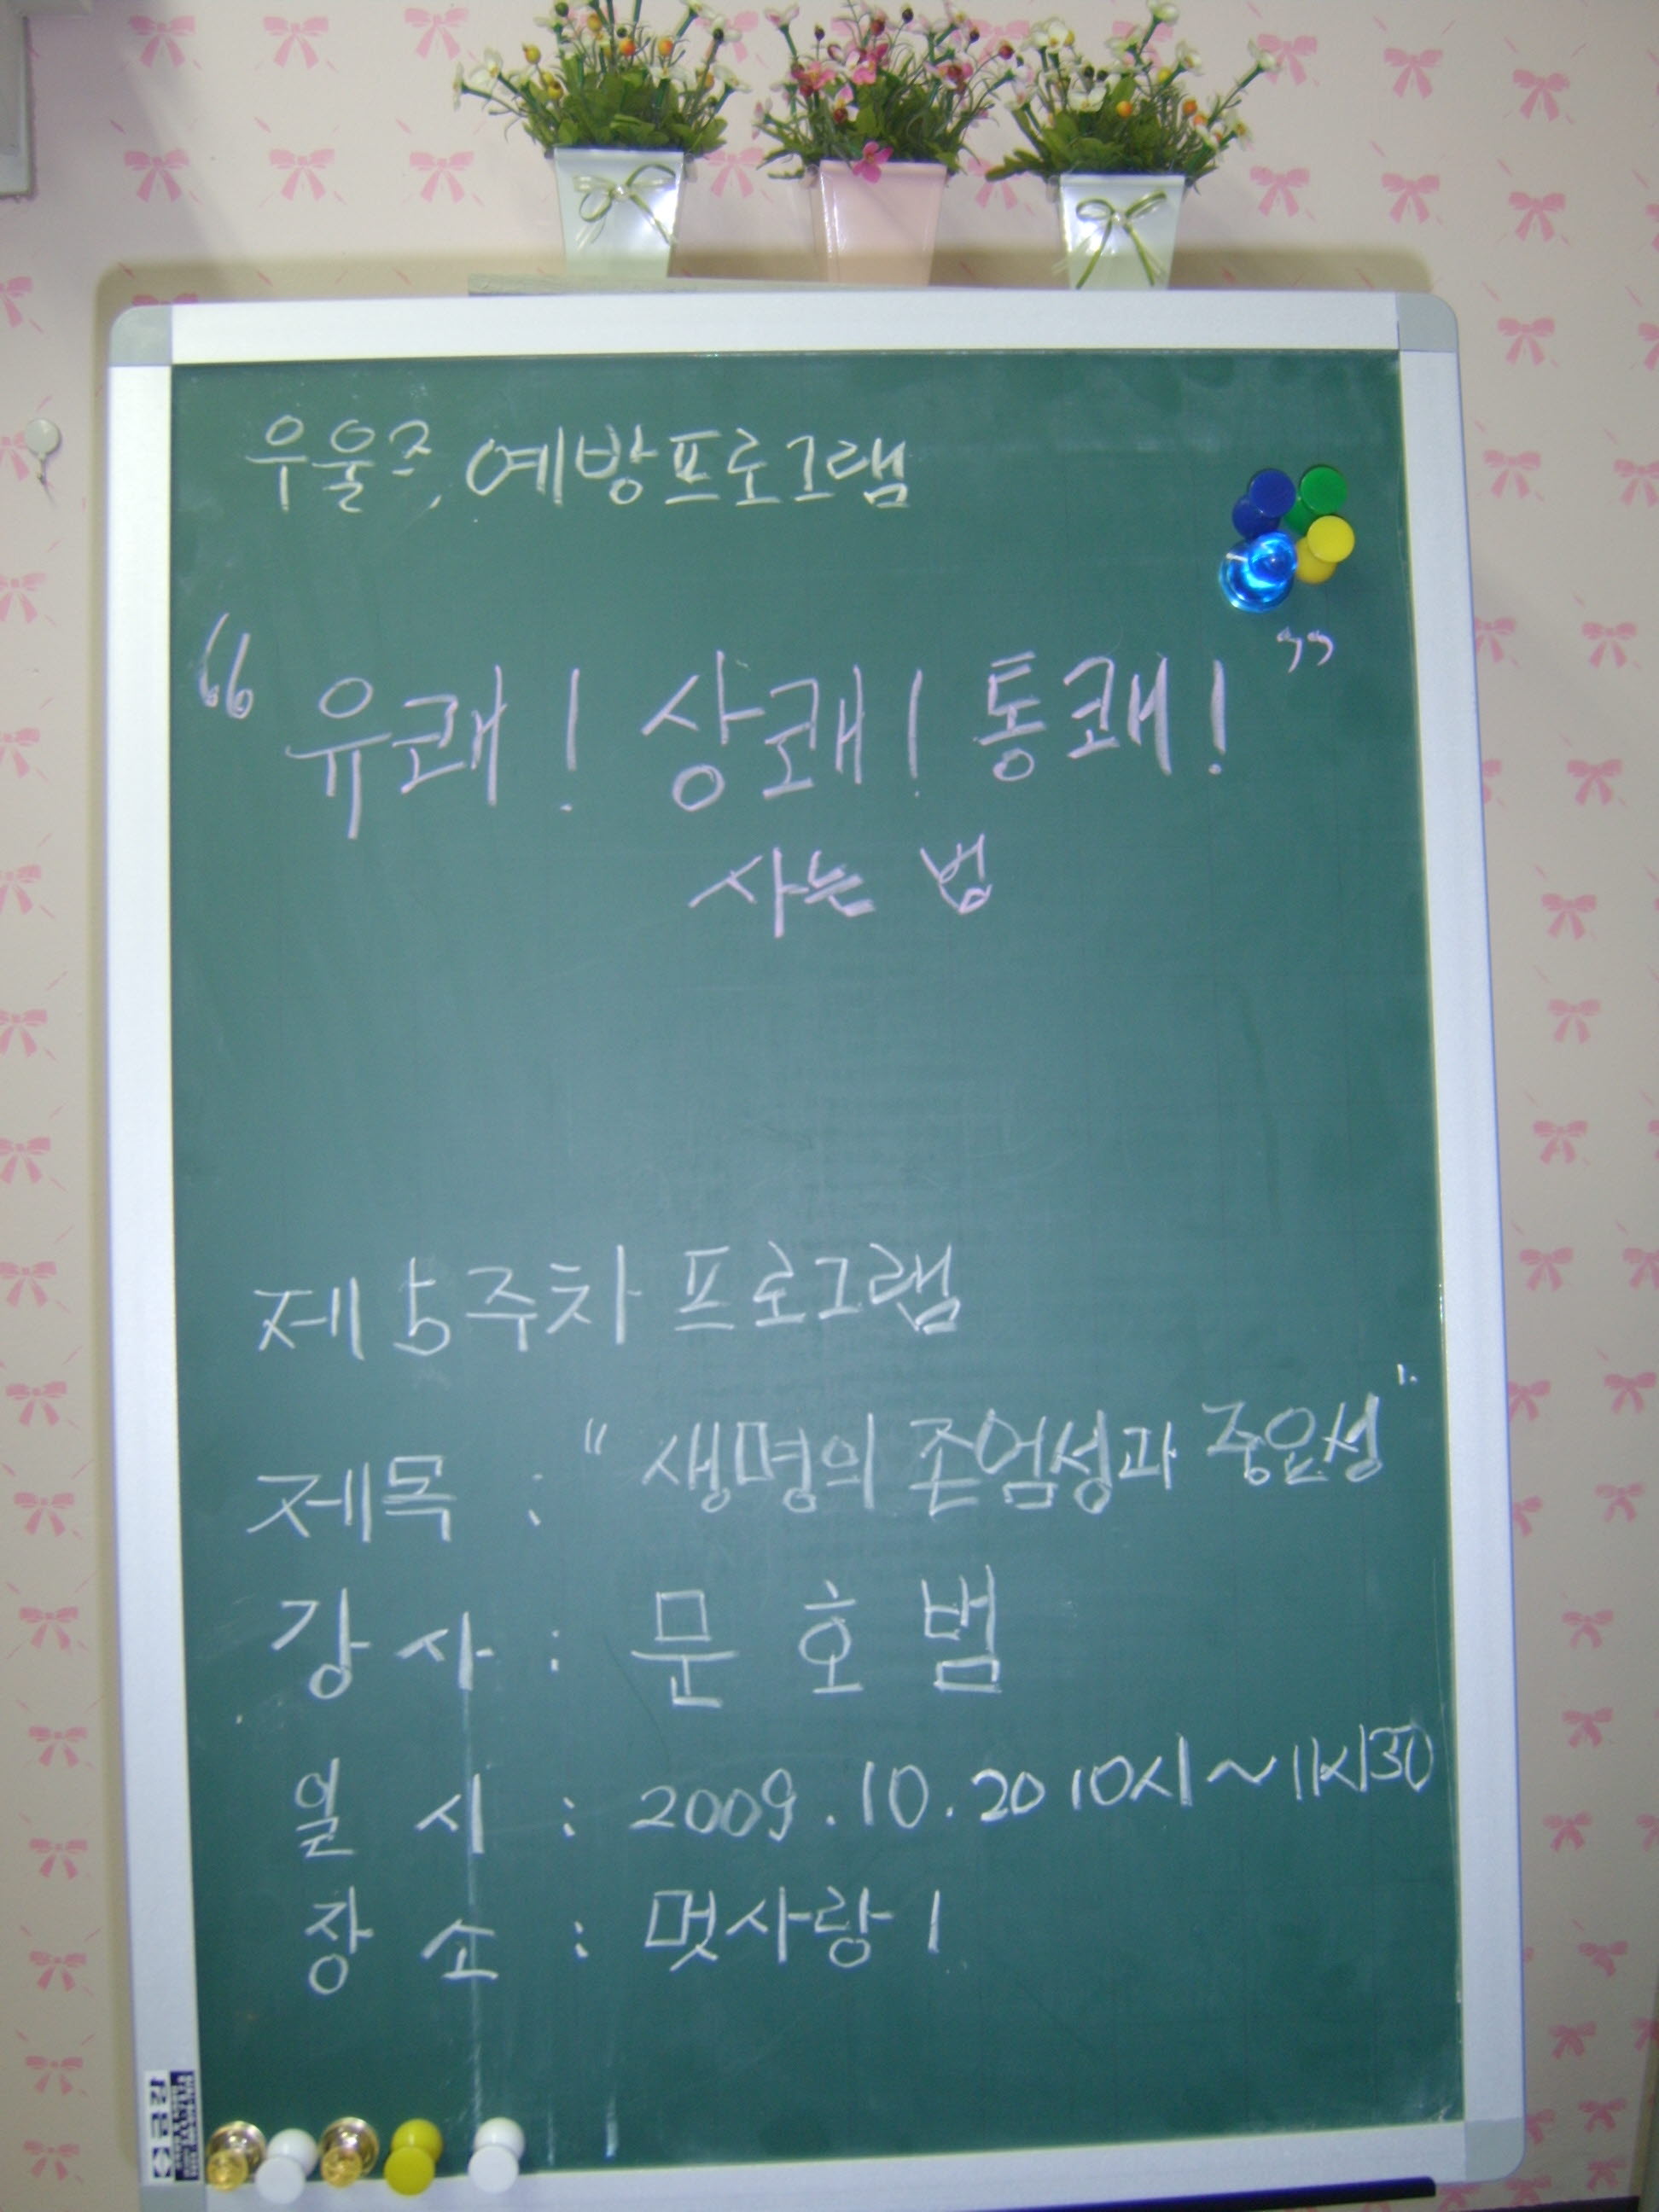 우울증, 예방프로그램
“유쾌! 상쾌! 통쾌!”
사는 법
제 5주차 프로그램
제목 : "생명의 존엄성과 중요성"
강 사 : 문 호 범
일 시 : 2009.10.20 10시~11시30
장 소 : 멋사랑 1